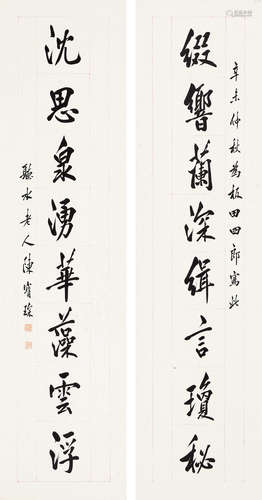 辛未仲秋為板田四郎寫此
綴響蘭深緝言瓊秘
沈思泉湧華藻雲浮
聽水老人陳寶琛